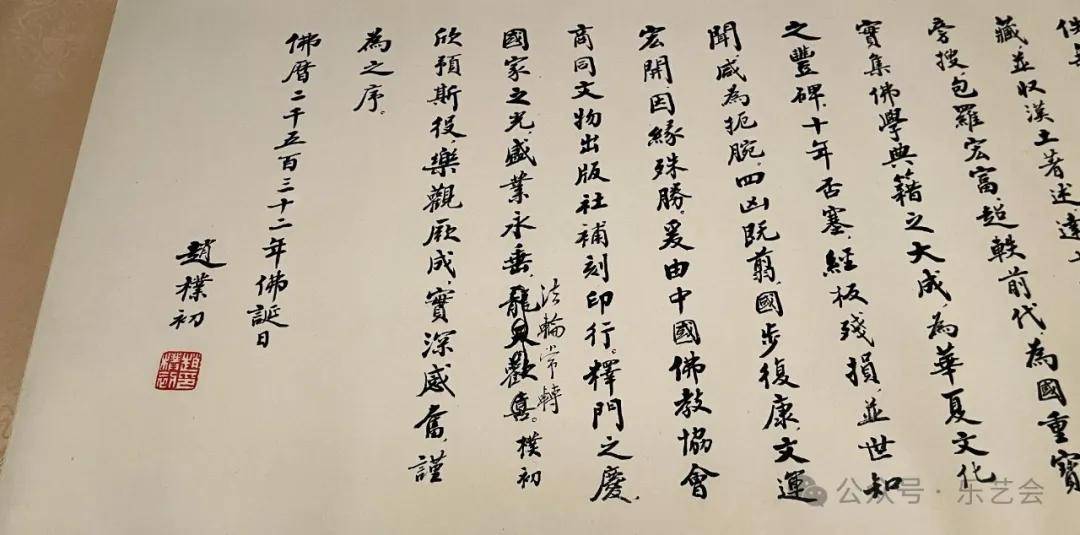 藏、並収漢土著述、達
旁搜、包羅宏富、超軼前代、為國重寶
實集佛學典籍之大成、為華夏文化
之豐碑、十年否塞、經板殘損、並世知
聞、咸為扼腕、四凶既翦、國步復康、文運
宏開、因緣殊勝、爰由中國佛教協會
商同文物出版社補刻印行。釋門之慶、
國家之光、盛業永垂、龍天歡喜。樸初
法輪常轉
欣預斯役、樂觀厥成、實深感奮、謹
為之序。
佛曆二千五百三十二年佛誕日
趙樸初
趙印樸初
公众号·乐艺会